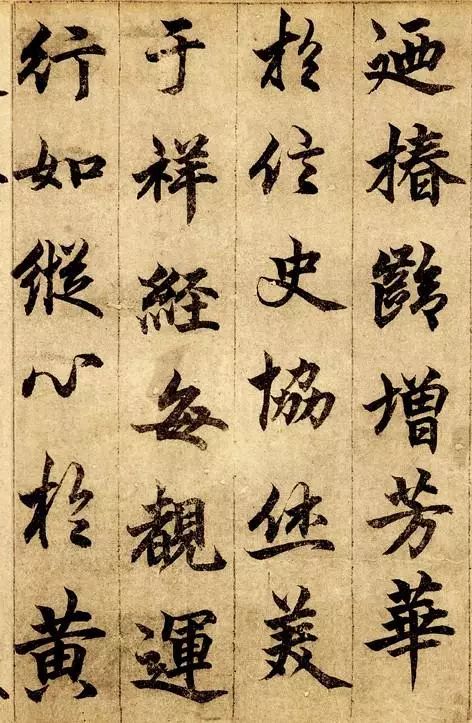 迺椿齡增芳華
於信史協休美
于祥經每觀運
行如縱心於黃